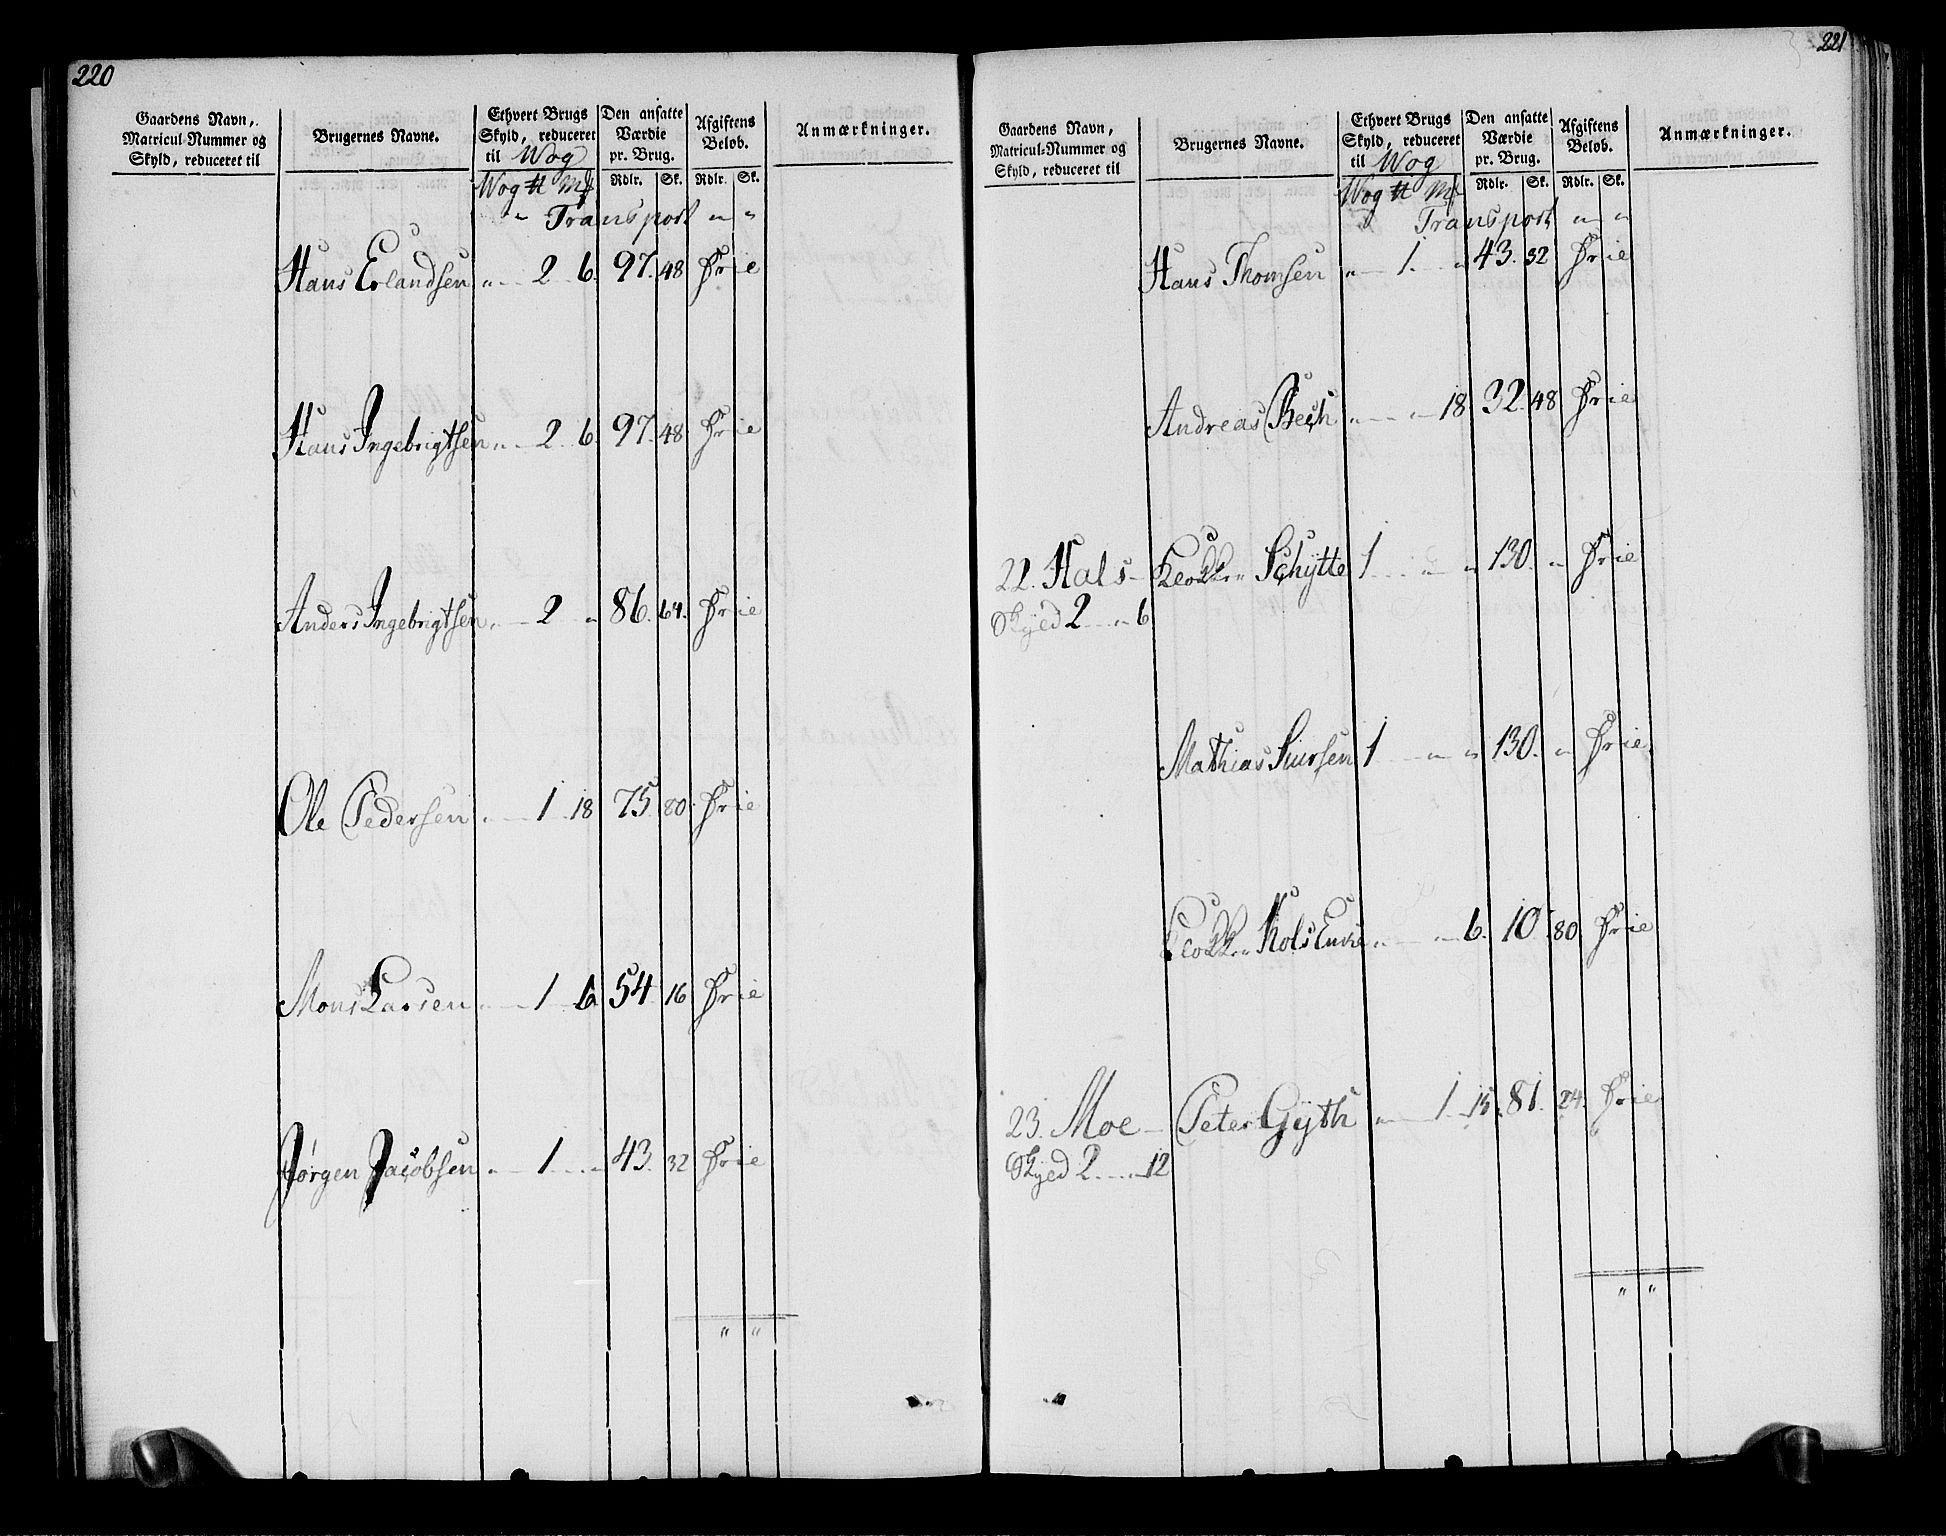 220
Gaardens Navn, Matricul-Nummer og Skyld, reduceret til
Brugernes Navne.
Ethvert Brugs Skyld, reduceret til Wog
Den ansatte Værdie pr. Brug.
Afgiftens Beløb.
Anmærkninger.
Wog ℔ Mk Rdlr. Sk. Rdlr. Sk.
" Transport " "
Hans Erlandsen " 2 6. 97. 48 Frie
Hans Ingebrigtsen " 2 6 97. 48 Frie
Anders Ingebrigtsen " 2 " 86. 64. Frie
Ole Pedersen " 1 18 75. 80. Frie
Mons Larsen " 1 6 54 16 Frie
Jørgen Jacobsen " 1 " 43. 32 Frie
" "
221
Gaardens Navn, Matricul-Nummer og Skyld, reduceret til
Brugernes Navne.
Ethvert Brugs Skyld, reduceret til Wog
Den ansatte Værdie pr. Brug.
Afgiftens Beløb.
Anmærkninger.
Wog ℔ Mk Rdlr. Sk. Rdlr. Sk.
Transport " "
Hans Thomsen " 1. " 43. 32 Frie
Andreas Bech " " 18 32. 48 Frie
22. Hals - Klokker Schytte 1 " " 130. " Frie
Skyld 2 " 6
Mathias Siursen 1 " " 130. " Frie
Klokker Kols Enke " " 6. 10 80 Frie
23. Moe - Peter Gyth " 1 15 81. 24. Frie
Skyld 2 " 12
" "